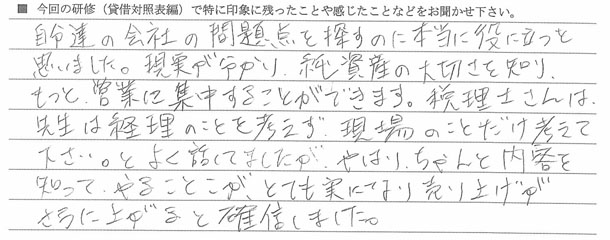 ■ 今回の研修（貸借対照表編）で特に印象に残ったことや感じたことなどをお聞かせ下さい。
自分達の会社の問題点を探すのに本当に役に立つと
思いました。現実が分かり、純資産の大切さを知り、
もっと、営業に集中することができます。税理士さんは、
先生は経理のことを考えず、現場のことだけ考えて
下さい。とよく話してましたが、やはり、ちゃんと内容を
知って、やることこが、とても実になり売り上げが
さらに上がると確信しました。